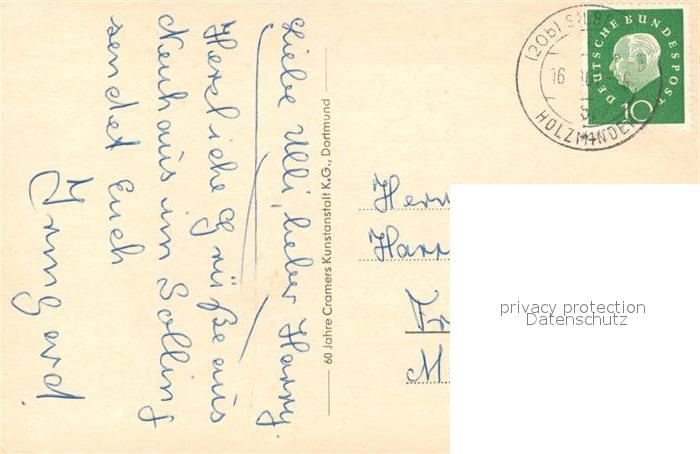 Liebe Ulli, lieber Harry.
Herzliche Grüße aus
Neuhaus im Solling
sendet Euch
Irmgard
60 Jahre Cramers Kunstanstalt K.G., Dortmund
(20b) SILB
16
HOLZMINDEN
DEUTSCHE BUNDESPOST
10
Herr
Harr
Fr
M
privacy protection
Datenschutz